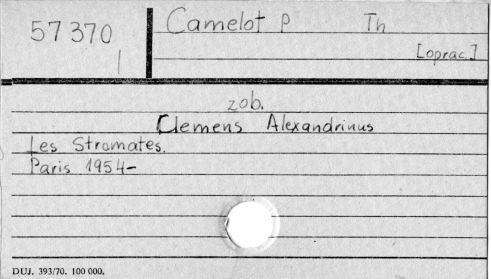 57370
I
Camelot P Th
[oprac.]
zob.
Clemens Alexandrinus
Les Stromates.
Paris 1954-
DUJ. 393/70. 100 000.